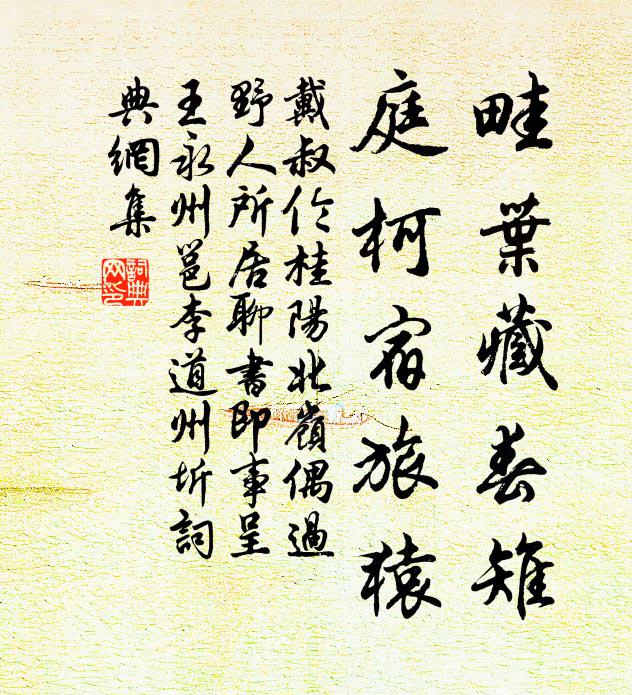 畦葉藏春雉
庭柯宿旅猿
戴叔倫桂陽北嶺偶過
野人所居聊書即事呈
王永州邕李道州圻詞
典網集
詞典
网印